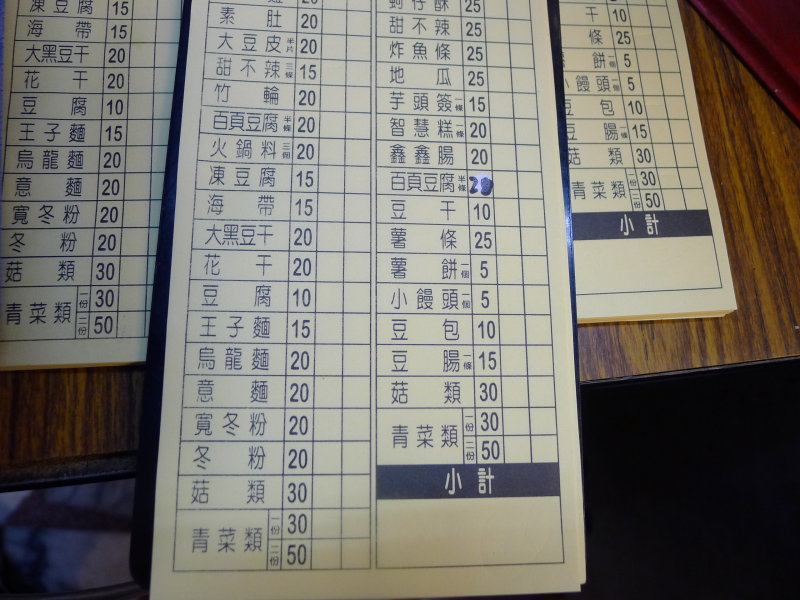 凍豆腐 15
海帶 15
大黑豆干 20
花干 20
豆腐 10
王子麵 15
烏龍麵 20
意麵 20
寬冬粉 20
冬粉 20
菇類 30
青菜類 一份 30
二份 50
素肚 20
大豆皮 半片 20
甜不辣 三條 15
竹輪 20
百頁豆腐 半條 20
火鍋料 三個 20
凍豆腐 15
海帶 15
大黑豆干 20
花干 20
豆腐 10
王子麵 15
烏龍麵 20
意麵 20
寬冬粉 20
冬粉 20
菇類 30
青菜類 一份 30
二份 50
蚵仔酥 25
甜不辣 25
炸魚條 25
地瓜 25
芋頭簽 一條 15
智慧糕 一條 20
鑫鑫腸 20
百頁豆腐 半條 20
豆干 10
薯條 25
薯餅 一個 5
小饅頭 一個 5
豆包 10
豆腸 一條 15
菇類 30
青菜類 一份 30
二份 50
小計
干 10
條 25
餅 一個 5
小饅頭 一個 5
豆包 10
豆腸 一條 15
菇類 30
青菜類 一份 30
二份 50
小計